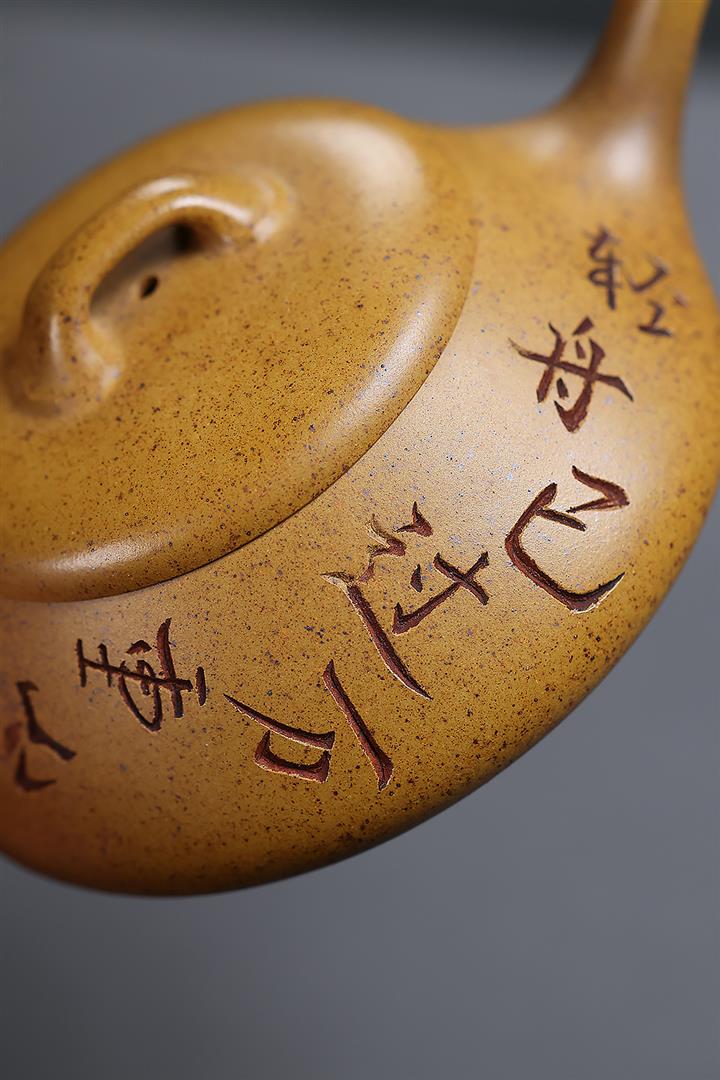 轻舟已过万重山